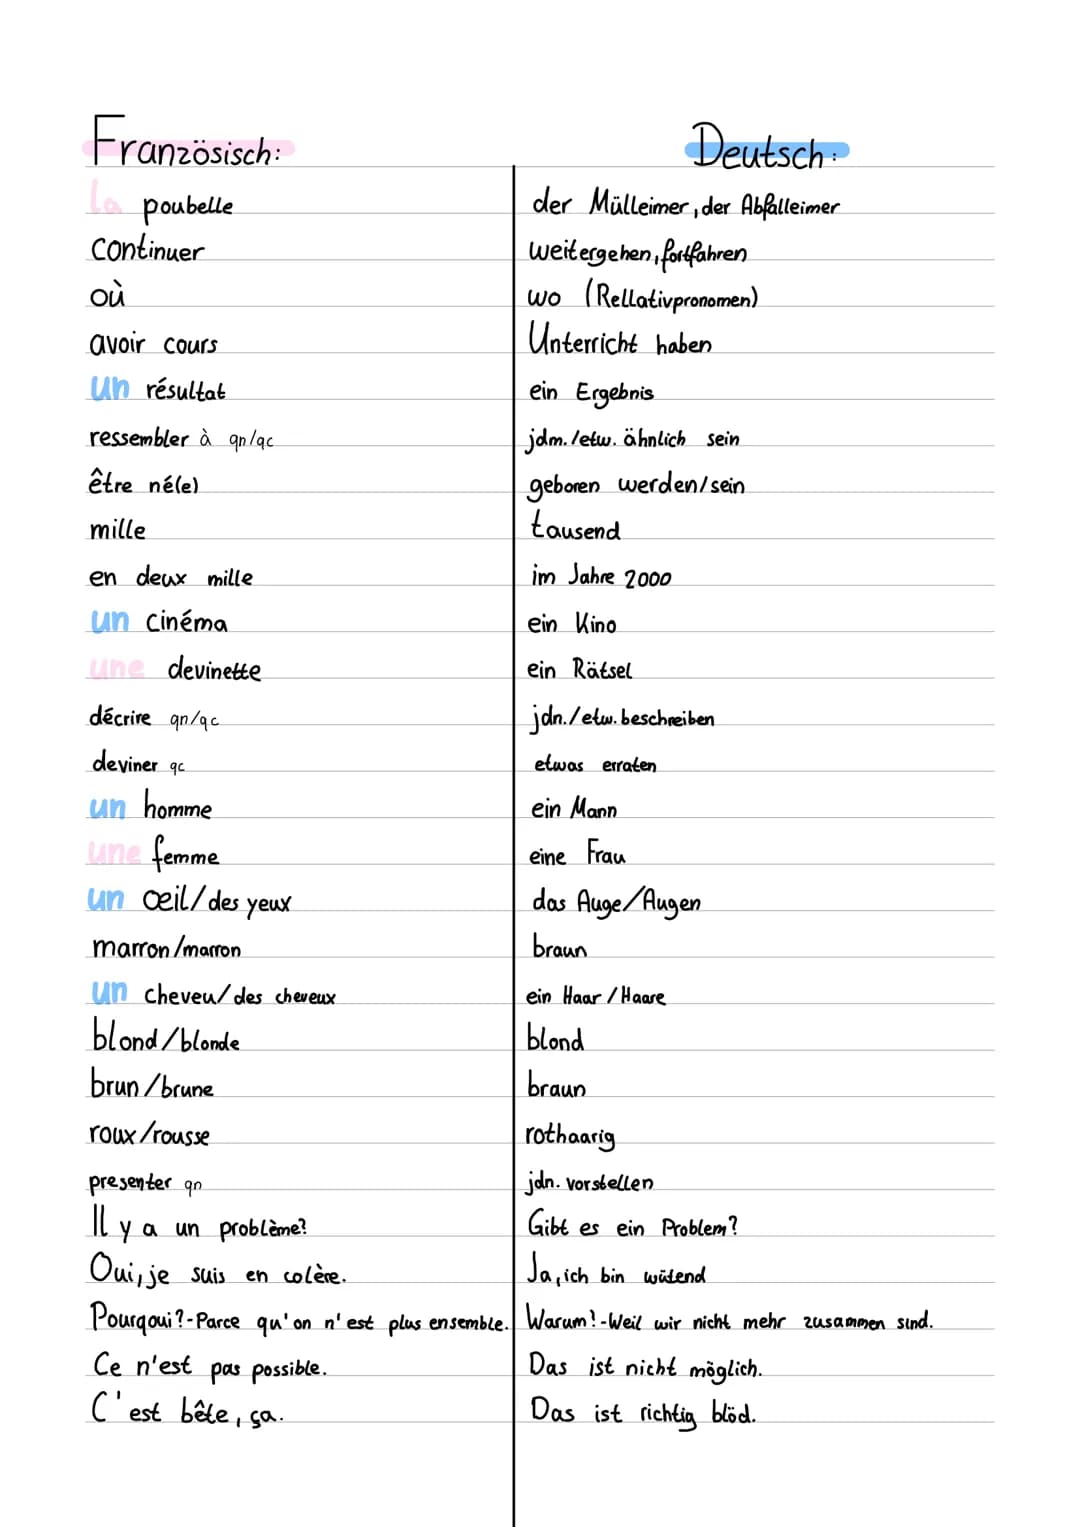 Französisch: Deutsch:
la poubelle der Mülleimer, der Abfalleimer
continuer weitergehen, fortfahren
où wo (Rellativpronomen)
avoir cours Unterricht haben
un résultat ein Ergebnis
ressembler à qn/qc jdm./etw. ähnlich sein
être né(e) geboren werden/sein
mille tausend
en deux mille im Jahre 2000
un cinéma ein Kino
une devinette ein Rätsel
décrire qn/qc jdn./etw. beschreiben
deviner qc etwas erraten
un homme ein Mann
une femme eine Frau
un œil/des yeux das Auge/Augen
marron/marron braun
un cheveu/des cheveux ein Haar/Haare
blond/blonde blond
brun/brune braun
roux/rousse rothaarig
presenter qn jdn. vorstellen
Il y a un problème? Gibt es ein Problem?
Oui, je suis en colère. Ja, ich bin wütend
Pourqoui?-Parce qu'on n'est plus ensemble. Warum!-Weil wir nicht mehr zusammen sind.
Ce n'est pas possible. Das ist nicht möglich.
C'est bête, ça. Das ist richtig blöd.